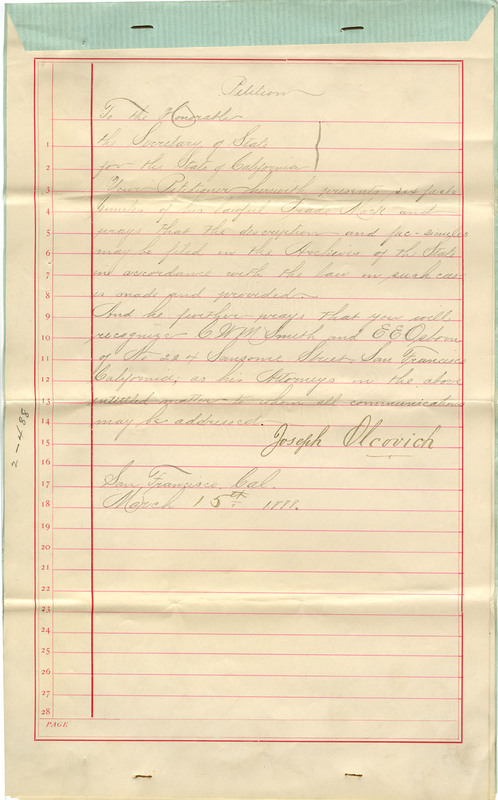 Petition
To the Honorable
the Secretary of State
for the State of California
Your Petitioner herewith presents six facsimiles
of his lawful Trade Mark and
prays that the description and fac-similes
may be filed in the Archives of the State
in accordance with the law in such case
is made and provided.
And he further prays that you will
recognize C W M Smith and E E Osborn
of No 224 Sansome Street San Francisco
California; as his Attorneys in the above
entitled matter to whom all communications
may be addressed.
Joseph Olcovich
San Francisco, Cal.
March 15th 1888.
1
2
3
4
5
6
7
8
9
10
11
12
13
14
15
16
17
18
19
20
21
22
23
24
25
26
27
28
PAGE